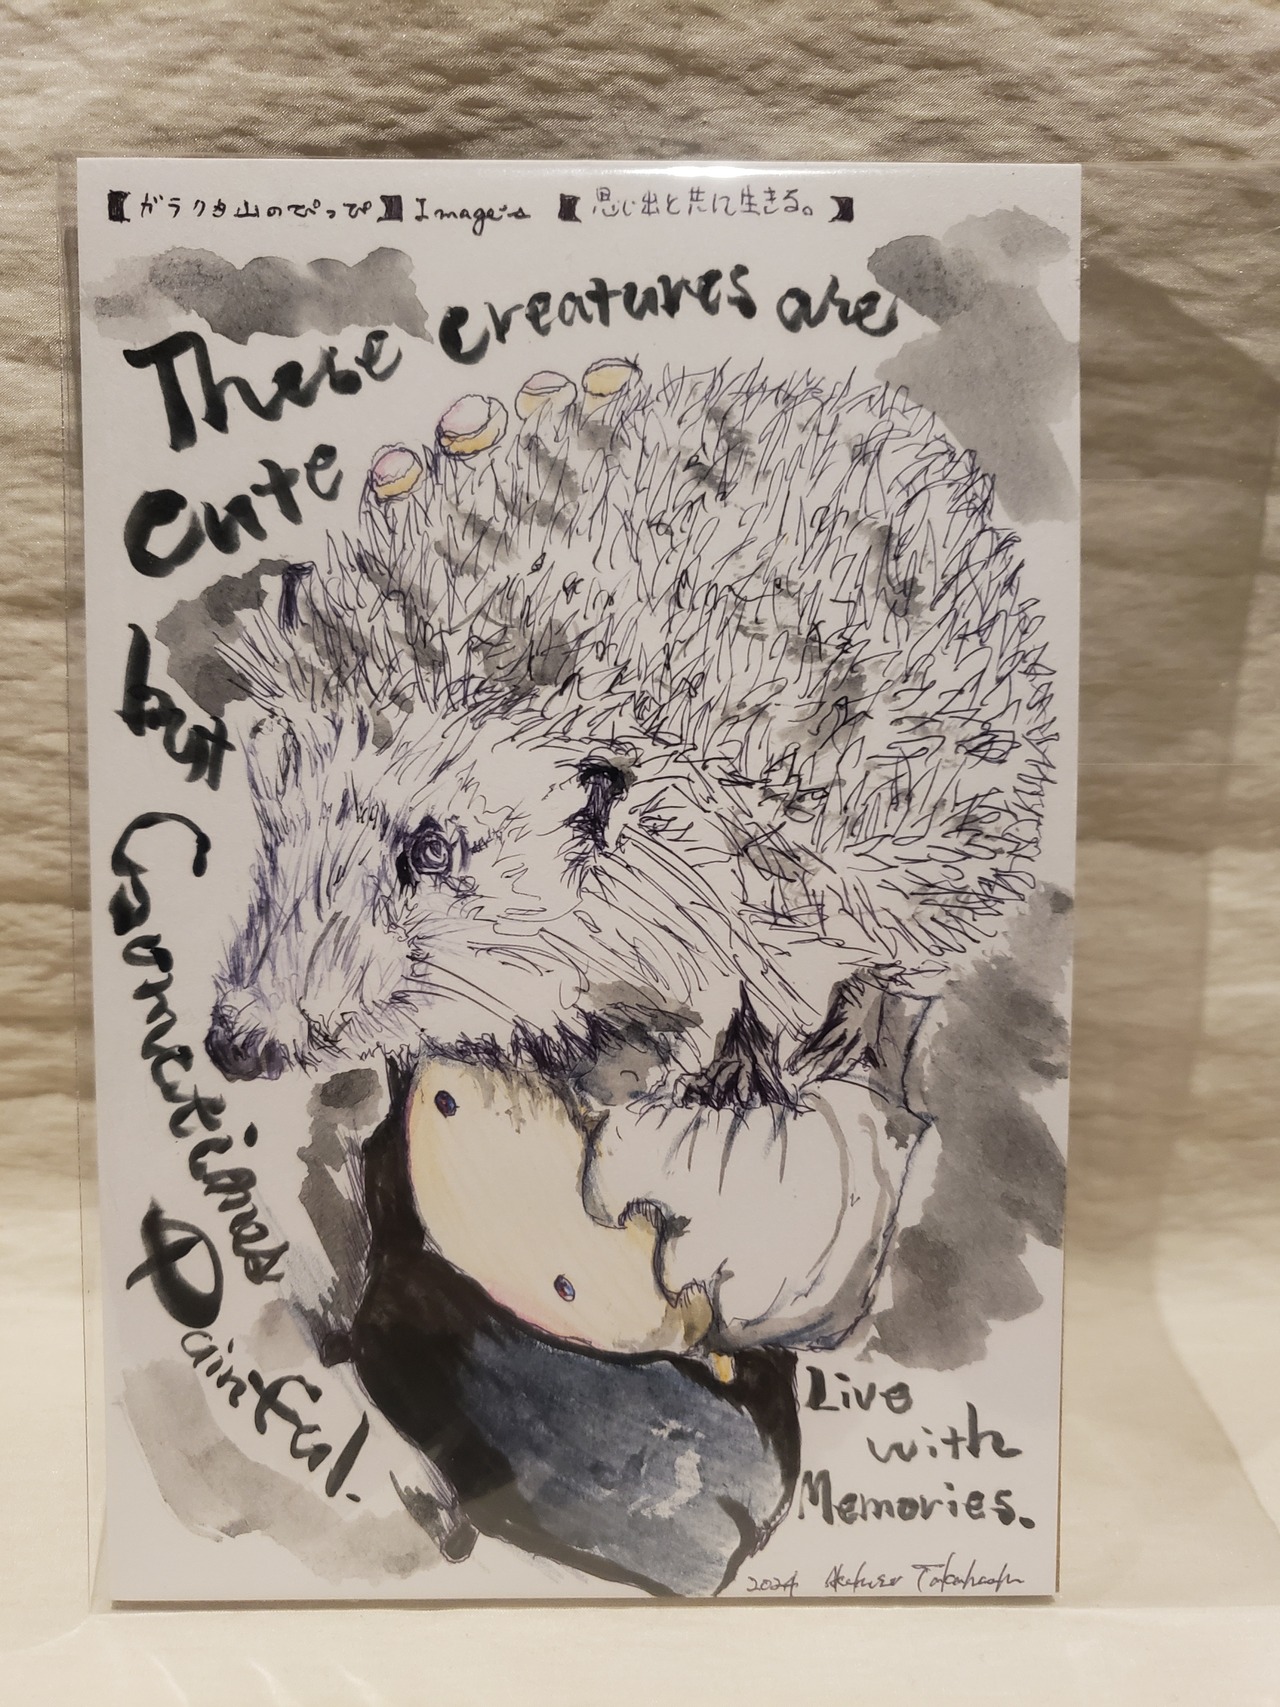 【ガラクタ山のぴっぴ】Image's 【思い出と共に生きる。】
These creatures are
cute
but
Sometimes
Painful.
Live
with
Memories.
2024 Takahashi